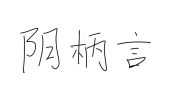 阴柄言